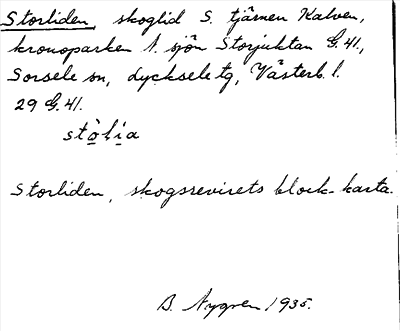 Storliden, skoglid S. tjärnen Kalven,
kronoparken N. sjön Storjuktan G.41.,
Sorsele sn, Lycksele tg, Västerb. l.
29 G.41.
stò̱lị̀a
Storliden, skogsrevirets block-karta.
B. Nygren 1935.